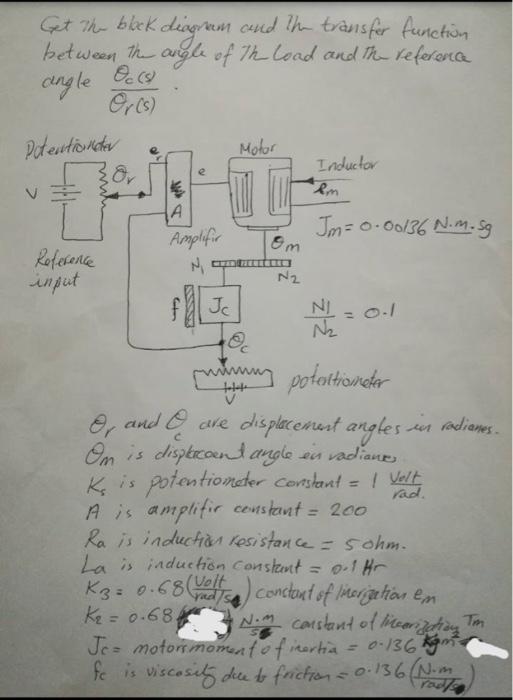 Get the block diagram and the transfer function
between the angle of the load and the reference
angle θc(s)
θr(s) .
Potentiometer
er
Motor
Inductor
V
θr
e
em
A
Jm = 0.00136 N.m.sg
Amplifir
θm
Reference
input
N1
N2
f
Jc
N1 / N2 = 0.1
θc
V
potentiometer
θr and θc are displacement angles in radianes.
θm is displacment angle in radianes
Ks is potentiometer constant = 1 Volt/rad.
A is amplifir constant = 200
Ra is induction resistance = 5 ohm.
La is induction constant = 0.1 Hr
K3 = 0.68 (Volt/rad/sg) constant of linerization em
K2 = 0.68 N.m constant of linearization Tm
Jc = motors moment of inertia = 0.136 Kgm²
fc is viscosity due to friction = 0.136 (N.m/rad/sg)